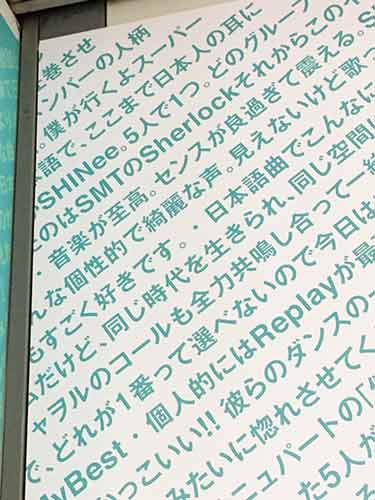 巻させ
ンバーの人柄
。僕が行くよスーパー
語で、ここまで日本人の耳に
SHINee。5人で1つ。どのグループ
このはSMTのSherlockそれからこのイ
・音楽が至高。センスが良過ぎて震える。S
な個性的で綺麗な声。見えないけど歌っ
もすごく好きです。・日本語曲でこんなに
だけど、同じ時代を生きられ、同じ空間
ャヲルのコールも全力共鳴し合って一緒
で、どれが1番って選べないので今日は
MyBest・個人的にはReplayが最
っこいい!!彼らのダンスの一
みたいに惚れさせてく
ニュパートの「
た5人が